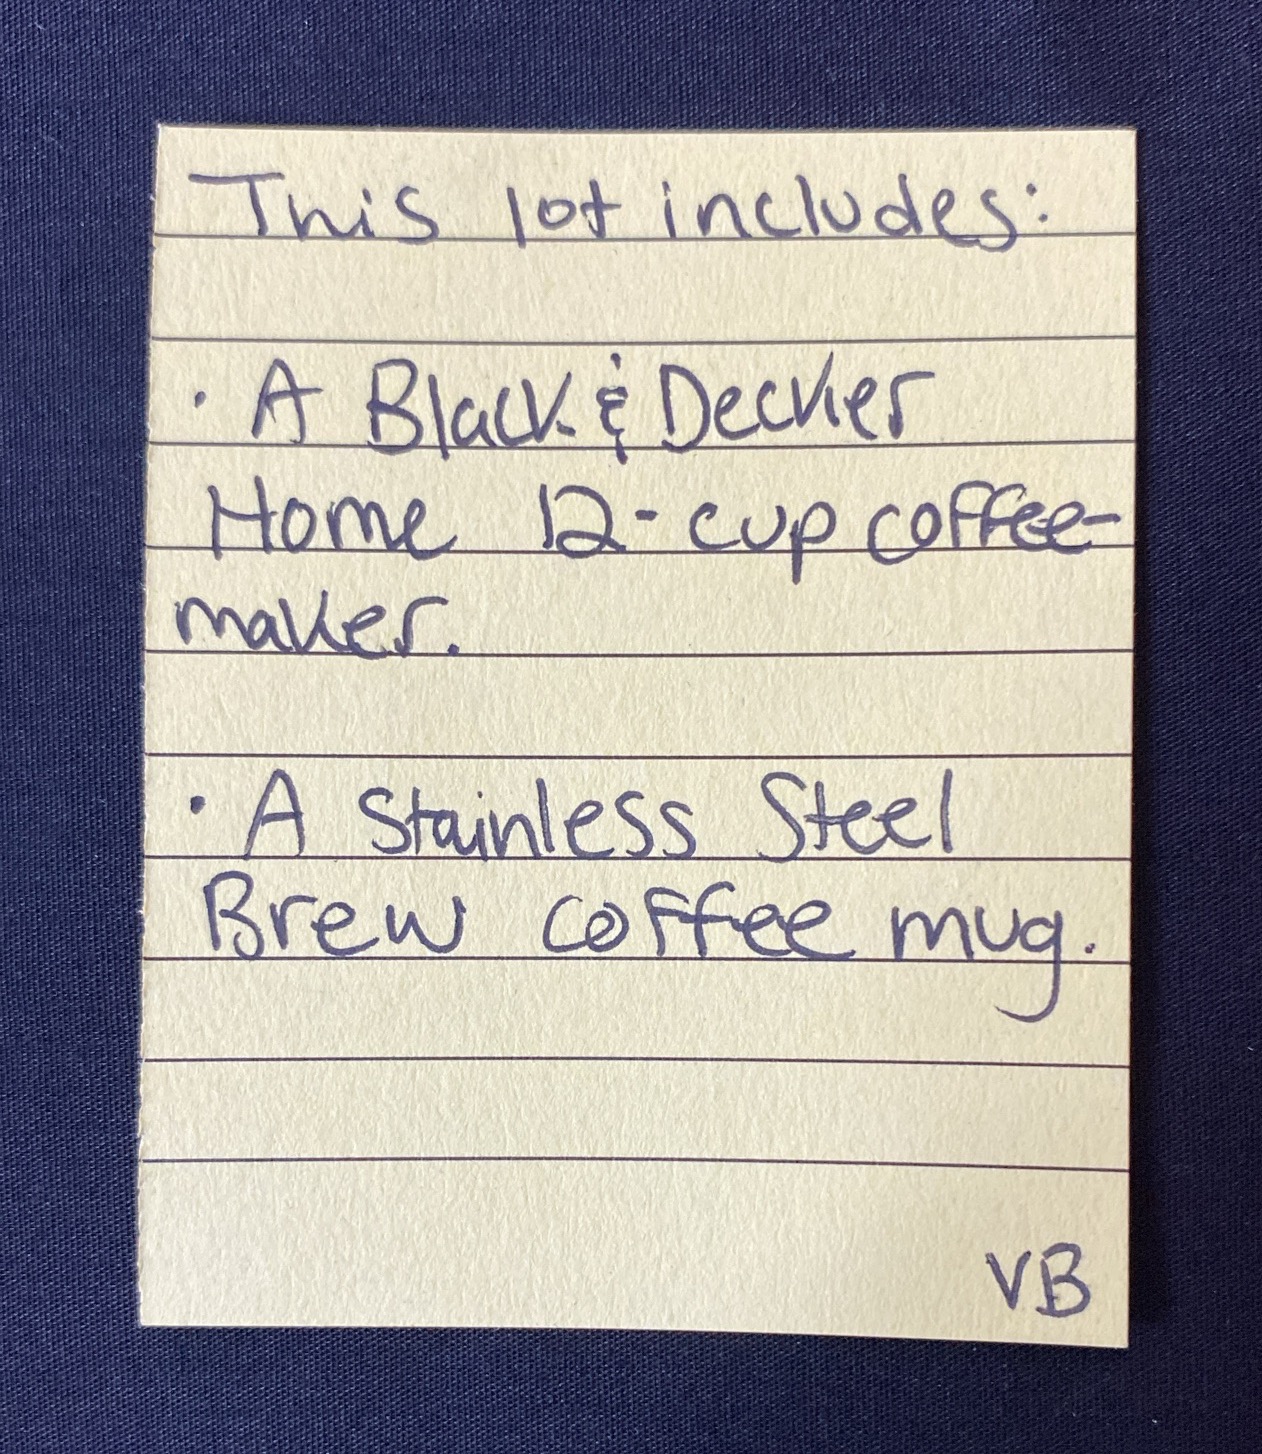 This lot includes:
· A Black & Decker
Home 12-cup coffee-
maker.
· A Stainless Steel
Brew coffee mug.
VB